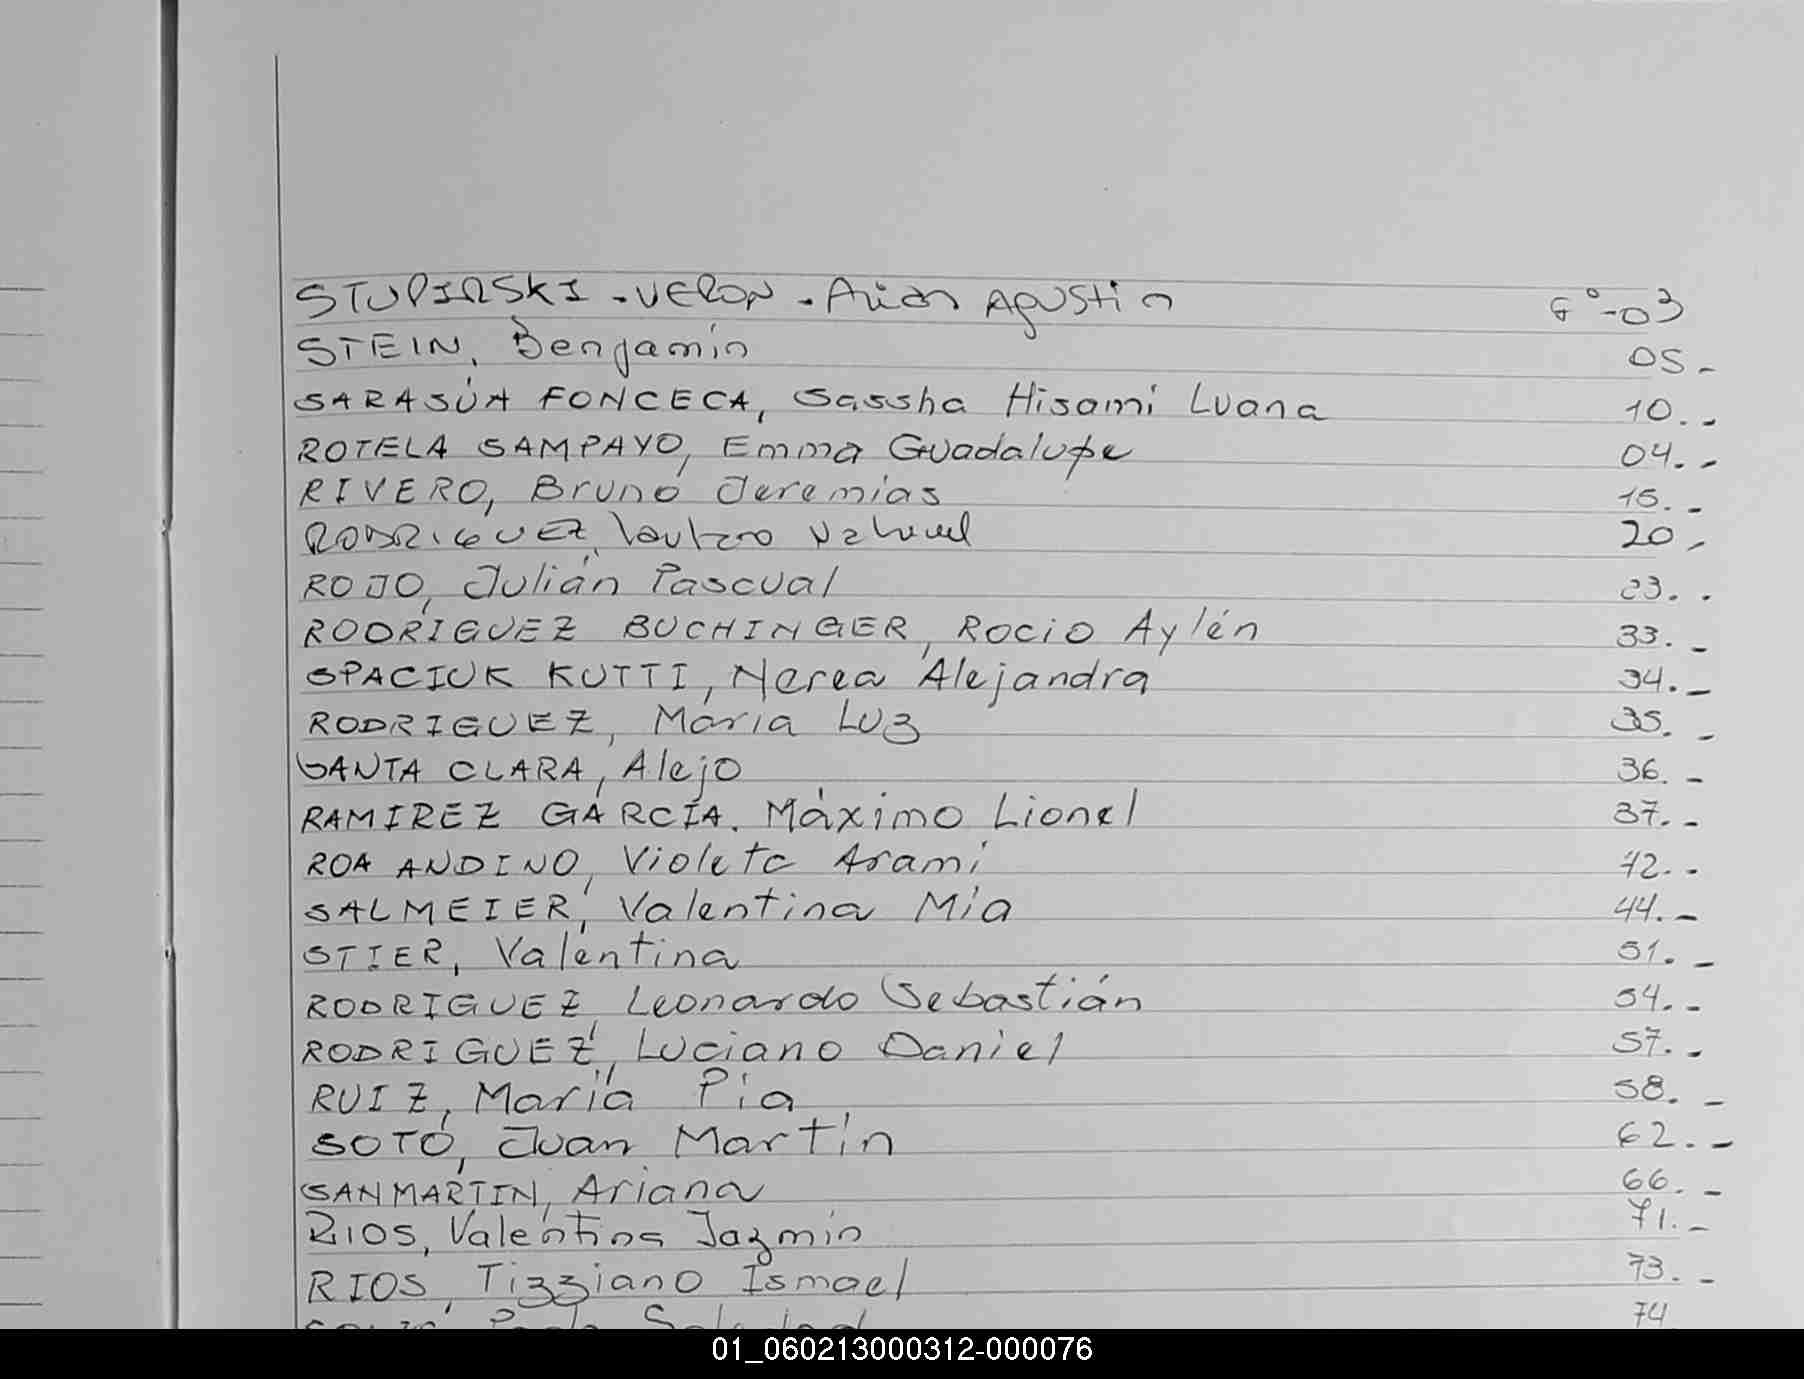 STUPINSKI - VERON - Arian Agustin Gº-03
STEIN, Benjamín 05.-
SARASÚA FONCECA, Sassha Hisami Luana 10..-
ROTELA SAMPAYO, Emma Guadalupe 04.-
RIVERO, Bruno Jeremías 15.-
RODRIGUEZ, Lautaro Nahuel 20.-
ROJO, Julián Pascual 23..
RODRÍGUEZ BUCHINGER, Rocio Aylén 33.-
SPACIUK KUTTI, Nerea Alejandra 34.-
RODRIGUEZ, María Luz 35.-
SANTA CLARA, Alejo 36.-
RAMIREZ GARCÍA. Máximo Lionel 37.-
ROA ANDINO, Violeta Arami 42.-
SALMEIER, Valentina Mía 44.-
STIER, Valentina 51.-
RODRIGUEZ, Leonardo Sebastián 54.-
RODRIGUEZ, Luciano Daniel 57.-
RUIZ, María Pía 58.-
SOTO, Juan Martín 62.-
SANMARTIN, Ariana 66.-
RIOS, Valentina Jazmín 71.-
RIOS, Tizziano Ismael 73.-
74
01_060213000312-000076